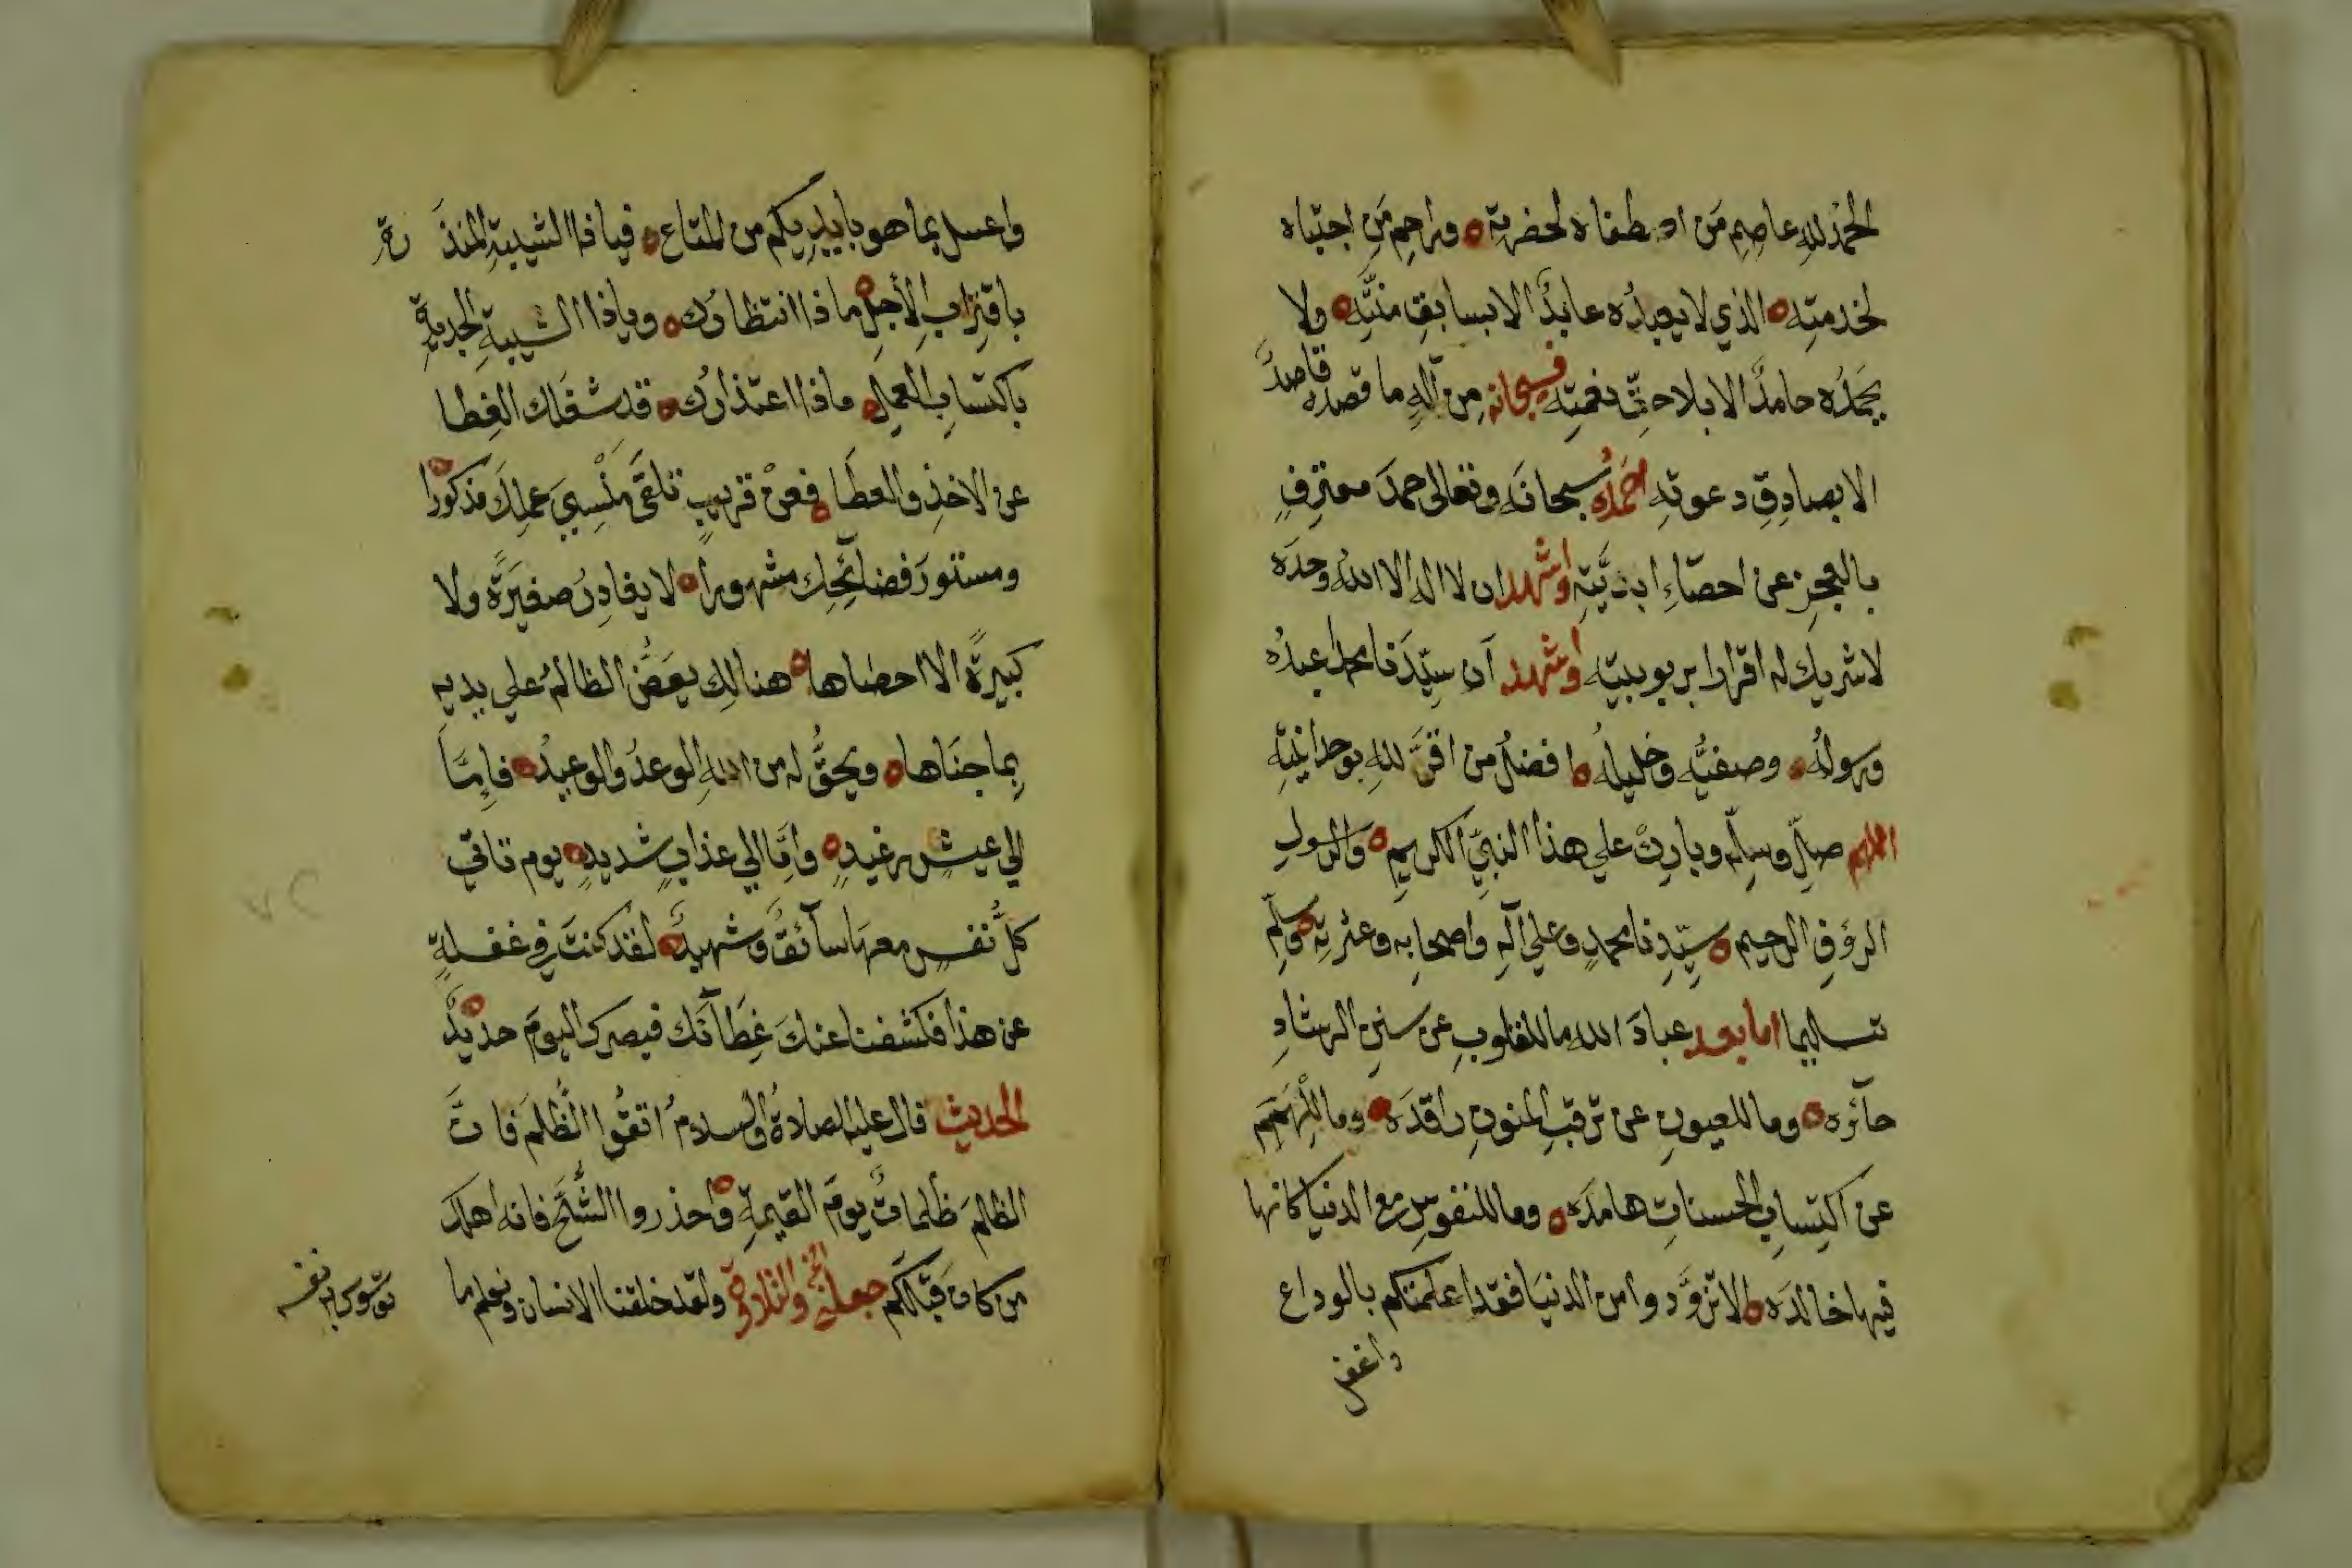 الحمْدُ للهِ عاصِمِ مَن اصطفاهُ لحضرتِهِ ٥ وراحِمِ مَنِ اجتباه
لخدمتِهِ ٥ الذي لا يعبدُه عابدٌ الا بسابقِ منَّتِهِ ٥ ولا
يحمَدُه حامدٌ الا بلاحقِ نعمتِه فسبحانه مِن آلهٍ ما قصده قاصدٌ
الا بصادِقِ دعوتِهِ احمَدُه سُبحانَه وتعالى حمدَ معترِفٍ
بالعجزِ عن احصَاءِ ابديَّتِه واشهد ان لا اله الا اللهُ وحدَه
لا شريك له اقرارا بربوبيته واشهد أن سيِّدَنا محمدا عبدُه
ورسولُه ٥ وصفيُّه وخليلُه ٥ افضلُ من اقرَّ للهِ بوحدانيتِه
اللهم صلِّ وسلِّم وبارِكْ على هذا النبيِّ الكريمِ ٥ والرسولِ
الرؤفِ الرحيم ٥ سيِّدِنا محمدٍ وعلى آلِهِ واصحابِه وعترتِه ٥ وسلِّم
تسليما اما بعد عبادَ الله ما للقلوبِ عن سننِ الرشادِ
حآئره ٥ وما للعيونِ عن ترقبِ المنونِ راقدَه ٥ وما للْهِمَمِ
عن اكتِسابِ الحسناتِ هامدَه ٥ وما للنفوسِ مع الدنيا كانها
فيها خالدَه ٥ الا تزوَّدوا من الدنيَا فقد اعلمتكم بالوداع
واعسل بما هو بايديكم من المتاع ٥ فيا ذا الشيبةِ المنذَرة
باقترابِ الأجلِ ٥ ماذا انتظارُك ٥ ويا ذا الشيبةِ الجديرةِ
باكتسابِ العملِ ٥ ماذا اعتذارُك ٥ قد شغَلك الغِطا
عن الاخذِ والعطَا ٥ فعنْ قريبٍ تلقَى منْسِيَ عملِكَ مذكورًا ٥
ومستورَ فضائحِك مشهورا ٥ لا يغادِرُ صغيرَةً ولا
كبيرةً الا احصَاها ٥ هنالِك يعَضُّ الظالمُ على يديه
بما جنَاها ٥ ويحقُّ له من اللهِ الوعدُ والوعيدُ ٥ فإمَّا
الى عيشٍ رغيدٍ ٥ وإمَّا الى عذابٍ شديدٍ ٥ يوم تاتى
كلُّ نفسٍ معهَا سآئقٌ وشهيدٌ ٥ لقد كنتَ فى غفلةٍ
عن هذا فكشفنا عنكَ غِطَآئَك فبصرك اليومَ حديدٌ ٥
الحديث قال عليه الصلاةُ والسلامُ اتقُوا الظلمَ فانَّ
الظالمَ ظلماتٌ يومَ القيمةِ ٥ واحذروا الشُّحَّ فانه اهلك
من كانَ قبلَكُم جعلنى والتلاوة ولقد خلقنا الانسان ونعلم ما
توسوس به نفسه